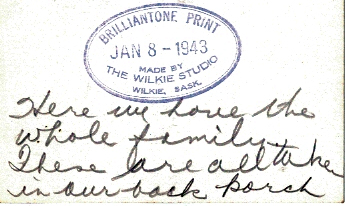 BRILLIANTONE PRINT
JAN 8 - 1943
MADE BY
THE WILKIE STUDIO
WILKIE, SASK.
Here we have the
whole family.
These are all taken
in our back porch